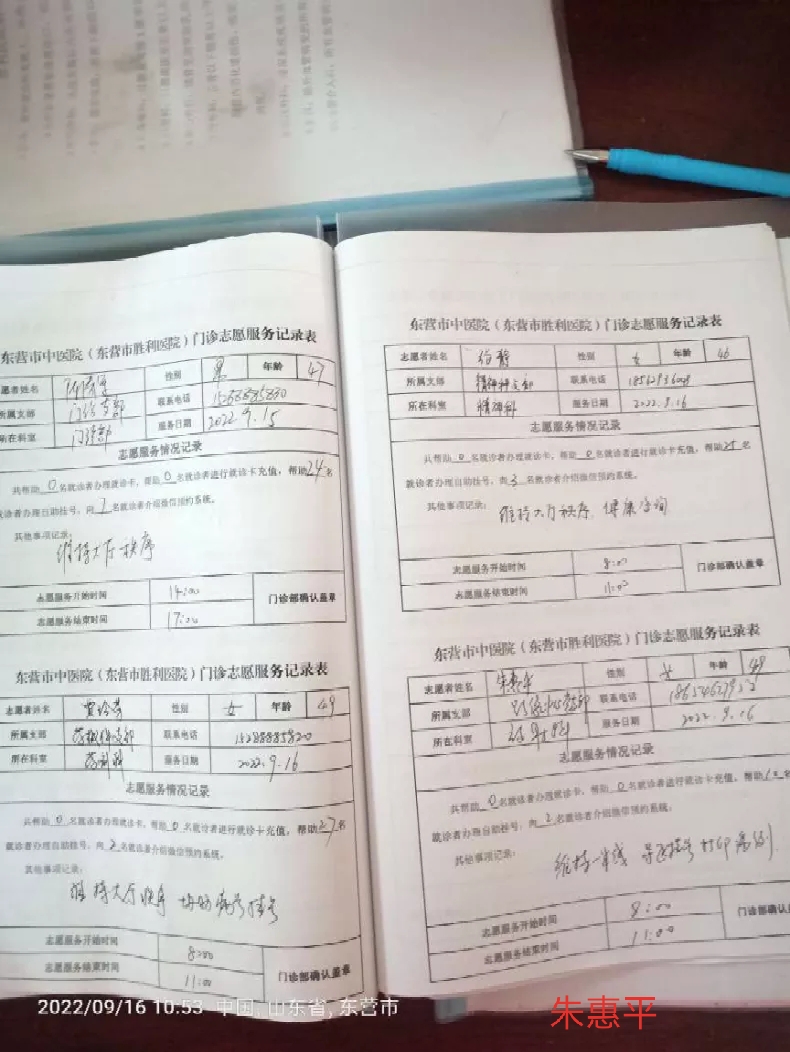 东营市中医院（东营市胜利医院）门诊志愿服务记录表
志愿者姓名 性别 男 年龄 47
所属支部 门诊支部 联系电话 15288885830
所在科室 门诊部 服务日期 2022.9.15
志愿服务情况记录
共帮助0名就诊者办理就诊卡，帮助0名就诊者进行就诊卡充值，帮助24名
就诊者办理自助挂号，向1名就诊者介绍微信预约系统。
其他事项记录：
维持大厅秩序
志愿服务开始时间 14:00
志愿服务结束时间 17:00
门诊部确认盖章
东营市中医院（东营市胜利医院）门诊志愿服务记录表
志愿者姓名 性别 女 年龄 49
所属支部 药械科支部 联系电话 15288885820
所在科室 药剂科 服务日期 2022.9.16
志愿服务情况记录
共帮助0名就诊者办理就诊卡，帮助0名就诊者进行就诊卡充值，帮助27名
就诊者办理自助挂号，向2名就诊者介绍微信预约系统。
其他事项记录：
维持大厅秩序 挂号
志愿服务开始时间 8:00
志愿服务结束时间 11:00
门诊部确认盖章
东营市中医院（东营市胜利医院）门诊志愿服务记录表
志愿者姓名 静 性别 女 年龄 46
所属支部 精神科支部 联系电话
所在科室 精神科 服务日期 2022.9.16
志愿服务情况记录
共帮助0名就诊者办理就诊卡，帮助0名就诊者进行就诊卡充值，帮助25名
就诊者办理自助挂号，向3名就诊者介绍微信预约系统。
其他事项记录：
维持大厅秩序、健康咨询
志愿服务开始时间 8:00
志愿服务结束时间 11:00
门诊部确认盖章
东营市中医院（东营市胜利医院）门诊志愿服务记录表
志愿者姓名 朱惠平 性别 女 年龄 49
所属支部 联系电话
所在科室 服务日期 2022.9.16
志愿服务情况记录
共帮助0名就诊者办理就诊卡，帮助0名就诊者进行就诊卡充值，帮助
就诊者办理自助挂号，向2名就诊者介绍微信预约系统。
其他事项记录：
维持一米线 挂号 打印病例
志愿服务开始时间 8:00
志愿服务结束时间 11:00
门诊部确认盖章
2022/09/16 10:53 中国, 山东省, 东营市
朱惠平